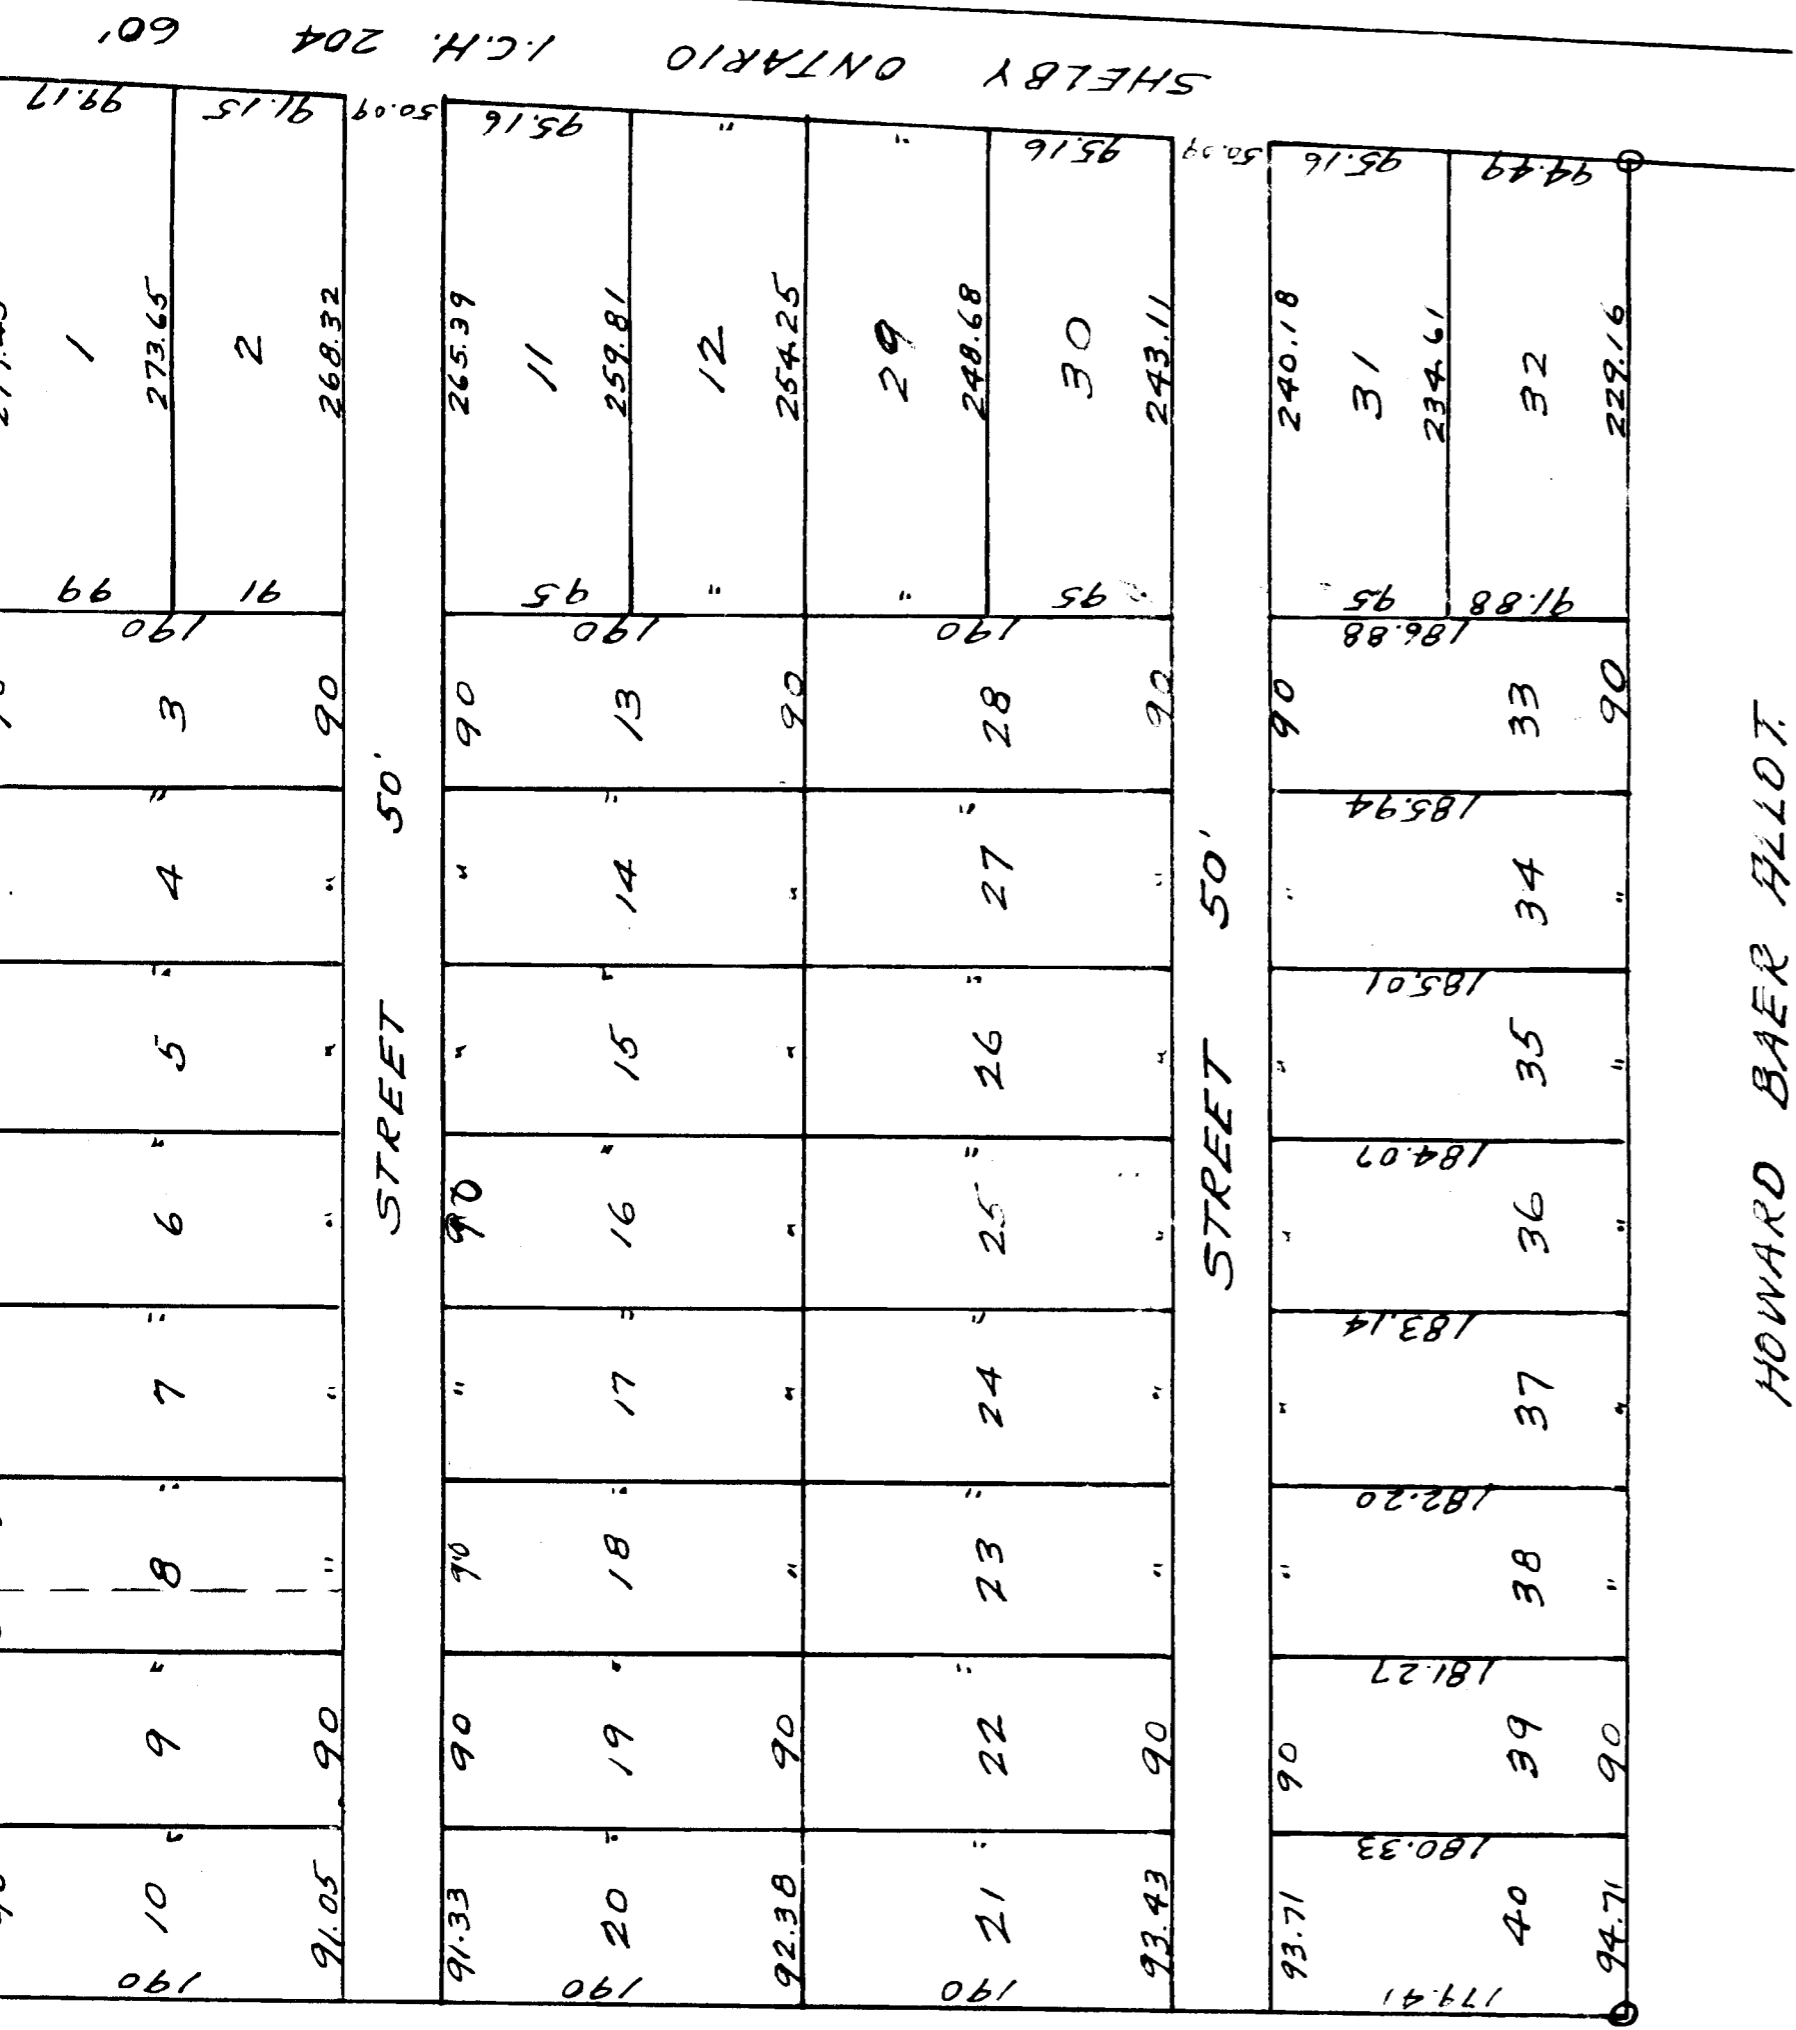 SHELBY ONTARIO I.C.H. 204 60'
99.17 91.15 50.09 95.16 " " 95.16 50.09 95.16 94.49
1 273.65 2 268.32 265.39 11 259.81 12 254.25 29 248.68 30 243.11 240.18 31 234.61 32 229.16
99 91 95 " " 95 95 91.88
190 190 190 186.88
3 90 90 13 90 28 90 90 33 90
" " " 185.94
4 " " 14 " 27 " " 34 "
" " " 185.01
5 " " 15 " 26 " " 35 "
" " " 184.07
6 " 90 16 " 25 " " 36 "
" " " 183.14
7 " " 17 " 24 " " 37 "
" " " 182.20
8 " 90 18 " 23 " " 38 "
" " " 181.27
9 90 90 19 90 22 90 90 39 90
" " " 180.33
10 91.05 91.33 20 92.38 21 93.43 93.71 40 94.71
190 190 190 179.41
STREET 50'
STREET 50'
HOWARD BAER ALLOT.